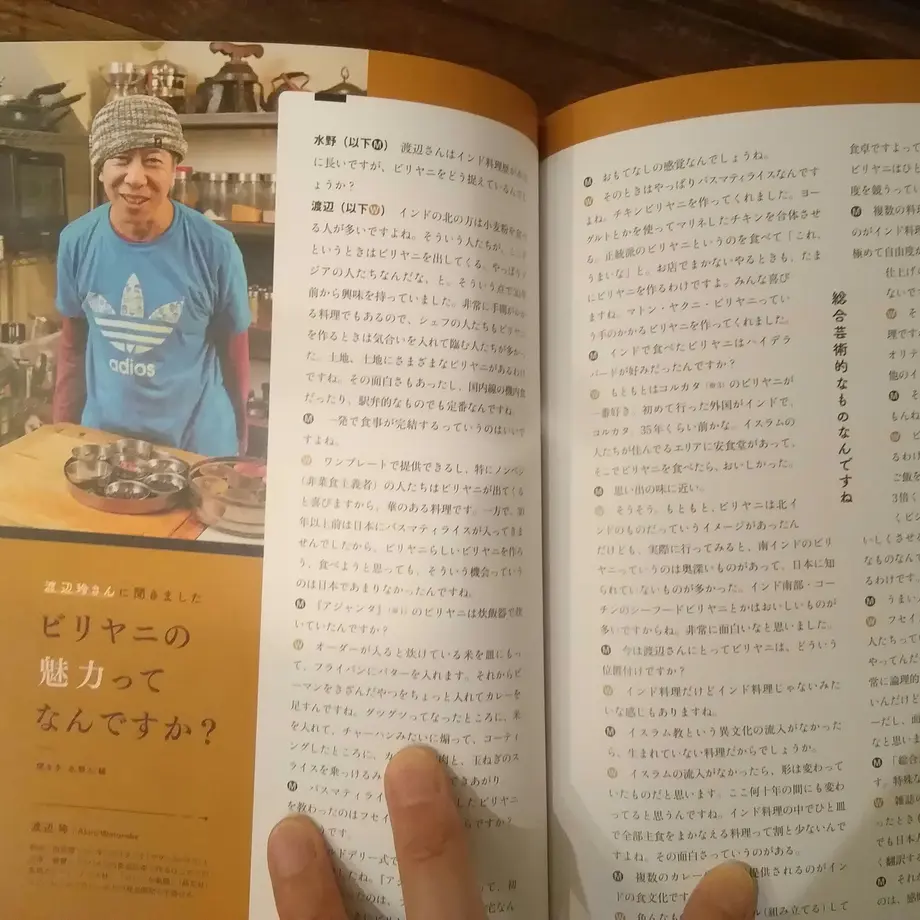 adidas
渡辺玲さんに聞きました
ビリヤニの
魅力って
なんですか?
渡辺 玲
水野(以下M) 渡辺さんはインド料理歴が
に長いですが、ビリヤニをどう捉えているんで
ょうか?
渡辺(以下W) インドの北の方は小麦粉を
る人が多いですよね。そういう人たちが、
というときはビリヤニを出してくる。やっぱり
ジアの人たちなんだな、と。そういう点で
前から興味を持っていました。非常に手間が
る料理でもあるので、シェフの人たちもビリヤニ
を作るときは気合いを入れて臨む人たちが多か
た。土地、土地にさまざまなビリヤニがあるわけ
ですね。その面白さもあったし、国内線の機内食
だったり、駅弁的なものでも定番なんですね。
M 一発で食事が完結するっていうのはいいで
すよね。
W ワンプレートで提供できるし、特にノンベジ
(非菜食主義者)の人たちはビリヤニが出てくる
と喜びますから。華のある料理です。一方で、
年以上前は日本にバスマティライスが入ってきま
せんでしたから、ビリヤニらしいビリヤニを作ろ
う、食べようと思っても、そういう機会っていう
のは日本であまりなかったんですね。
M 『アジャンタ』のビリヤニは炊飯器で炊
いていたんですか?
W オーダーが入ると炊けている米を皿にもっ
て、フライパンにバターを入れます。それからピ
ーマンをきざんだやつをちょっと入れてカレーを
足すんですね。グツグツってなったところに、米
を入れて、チャーハンみたいに煽って、コーティ
ングしたところに、 肉と、玉ねぎのス
ライスを乗っける できあがり。
M バスマティライ したビリヤニ
を教わったのはフセイ ですか?
です。
ルドデリー式で
したね。『アジ
M おもてなしの感覚なんでしょうね。
W そのときはやっぱりバスマティライスなんです
よね。チキンビリヤニを作ってくれました。ヨー
グルトとかを使ってマリネしたチキンを合体させ
る。正統派のビリヤニというのを食べて「これ、
うまいな」と。お店でまかないやるときも、たま
にビリヤニを作るわけですよ。みんな喜び
ますね。マトン・ヤクニ・ビリヤニってい
う手のかかるビリヤニを作ってくれました。
M インドで食べたビリヤニはハイデラ
バードが好みだったんですか?
W もともとはコルカタのビリヤニが
一番好き。初めて行った外国がインドで、
コルカタ。35年くらい前かな。イスラムの
人たちが住んでるエリアに安食堂があって、
そこでビリヤニを食べたら、おいしかった。
M 思い出の味に近い。
W そうそう。もともと、ビリヤニは北イ
ンドのものだっていうイメージがあったん
だけども、実際に行ってみると、南インドのビリ
ヤニっていうのは奥深いものがあって、日本に知
られていないものが多かった。インド南部・コー
チンのシーフードビリヤニとかはおいしいものが
多いですからね。非常に面白いなと思いました。
M 今は渡辺さんにとってビリヤニは、どういう
位置付けですか?
W インド料理だけどインド料理じゃないみた
いな感じもありますね。
M イスラム教という異文化の流入がなかった
ら、生まれていない料理だからでしょうか。
W イスラムの流入がなかったら、形は変わって
いたものだと思います。ここ何十年の間にも変わ
ってると思うんですね。インド料理の中でひと皿
で全部主食をまかなえる料理って割と少ないんで
すよね。その面白さっていうのがある。
M 複数のカレー 提供されるのがイン
ドの食文化です
(組み立てる)して
総合芸術的なものなんですね
食卓ですよって
ビリヤニはひと
度を競うってい
M 複数の料
のがインド料
極めて自由度
仕上げの
ないで
W そ
理です
オリテ
他のイ
M そ
もんね
W ビ
るわけ
ご飯を
3倍
くビシ
いしくさせる
なものなんで
るわけです。
M うまい
W フセイ
人たちって
やってんだ
常に論理的
いんだけど
ーだし、面
なと思いま
M 「総合
す。特殊な
W 雑誌の
ったとき
でも日本
く翻訳する
M それか
のは、感